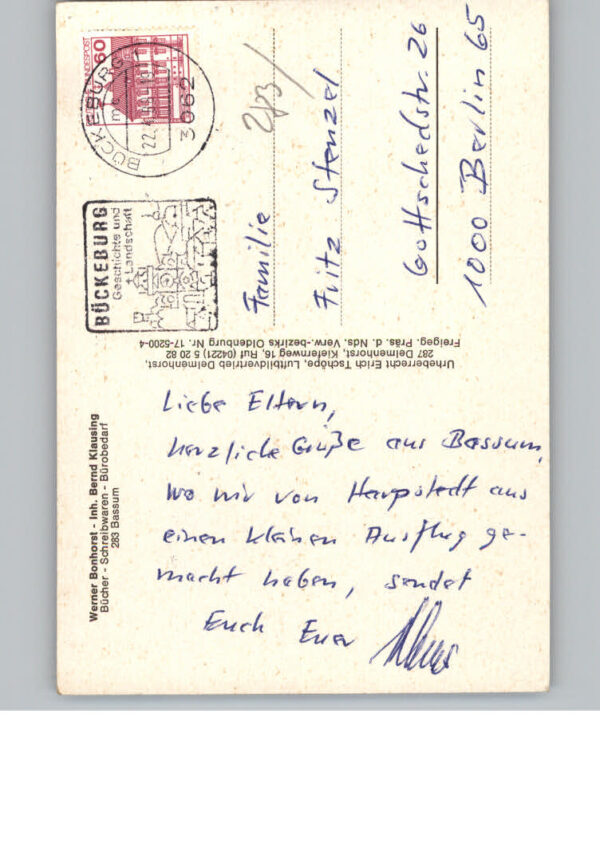 Liebe Eltern,
herzliche Grüße aus Bassum,
wo wir von Harpstedt aus
einen kleinen Ausflug ge-
macht haben, sendet
Euch Euer
Familie
Fritz Stenzel
Gottschedstr. 26
1000 Berlin 65
283/
60
BUNDESPOST
BÜCKEBURG 1
22.
3062
BÜCKEBURG
Geschichte und
+ Landschaft
Urheberrecht Erich Tschöpe, Luftbildvertrieb Delmenhorst,
287 Delmenhorst, Kiefernweg 16, Ruf (04221) 5 20 82
Freigeg. Präs. d. Nds. Verw.-bezirks Oldenburg Nr. 17-5200-4
Werner Bonhorst - Inh. Bernd Klausing
Bücher - Schreibwaren - Bürobedarf
283 Bassum